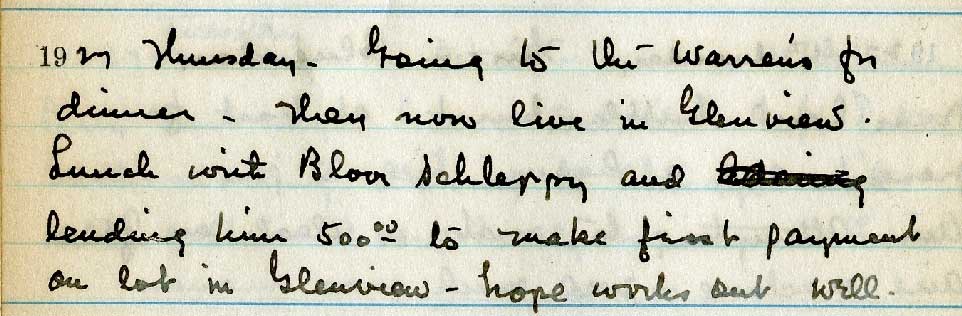 19 Thursday - Going to the Warren's for
dinner - They now live in Glenview.
Lunch with Bloor Schleppy and
lending him 500.00 to make first payment
on lot in Glenview - hope works out well.